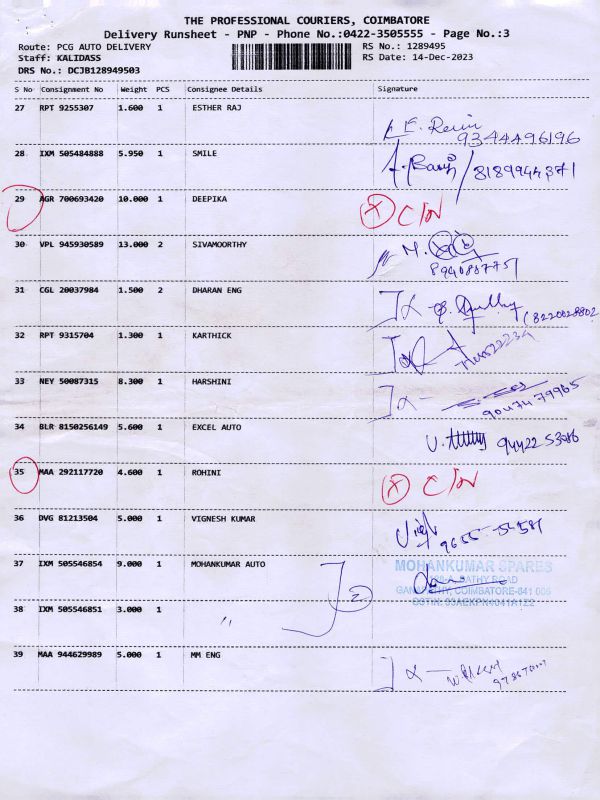 THE PROFESSIONAL COURIERS, COIMBATORE
Delivery Runsheet - PNP - Phone No.:0422-3505555 - Page No.:3
Route: PCG AUTO DELIVERY RS No.: 1289495
Staff: KALIDASS RS Date: 14-Dec-2023
DRS No.: DCJB128949503
S No Consignment No Weight PCS Consignee Details Signature
27 RPT 9255307 1.600 1 ESTHER RAJ
9344496196
28 IXM 505484888 5.950 1 SMILE
8189944371
29 AGR 700693420 10.000 1 DEEPIKA X C/N
30 VPL 945930589 13.000 2 SIVAMOORTHY M.
31 CGL 20037984 1.500 2 DHARAN ENG
32 RPT 9315704 1.300 1 KARTHICK
33 NEY 50087315 8.300 1 HARSHINI
9047479965
34 BLR 8150256149 5.600 1 EXCEL AUTO
94422 53086
35 MAA 292117720 4.600 1 ROHINI X C/N
36 DVG 81213504 5.000 1 VIGNESH KUMAR
37 IXM 505546854 9.000 1 MOHANKUMAR AUTO
MOHANKUMAR SPARES
SATHY ROAD
COIMBATORE-641 006
2
38 IXM 505546851 3.000 1 〃
39 MAA 944629989 5.000 1 MM ENG